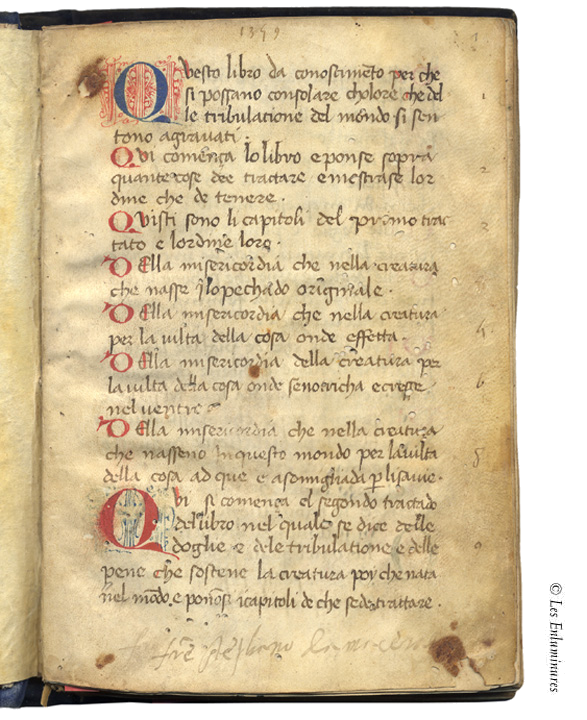 1359
Questo libro da conoscimēto per che
si possano consolare choloro che del
le tribulatione del mondo si sen
tono agravati.
Qui comença lo libro e ponse sopra
quante cose dee tractare e mostrase lor
dine che de tenere.
Quisti sono li capitoli del primo trac
tato e lordine loro.
Della misericordia che nella creatura
che nasse ī lo pechado originale.
Della misericordia che nella creatura
per la vilta della cosa onde effetta.
Della misericordia della creatura per
la vilta della cosa onde senotricha e cresse
nel ventre
Della misericordia che nella creatura
che nasseno in questo mondo per la vilta
della cosa ad que e asomigliada p̄ li savie.
Qui si comença el segondo tractado
del libro nel quale se dice delle
doglie e de le tribulatione e delle
pene che sostene la creatura poy che nata
nel mōdo, e ponōsi i capitoli de che sede trattare.
© Les Enluminures